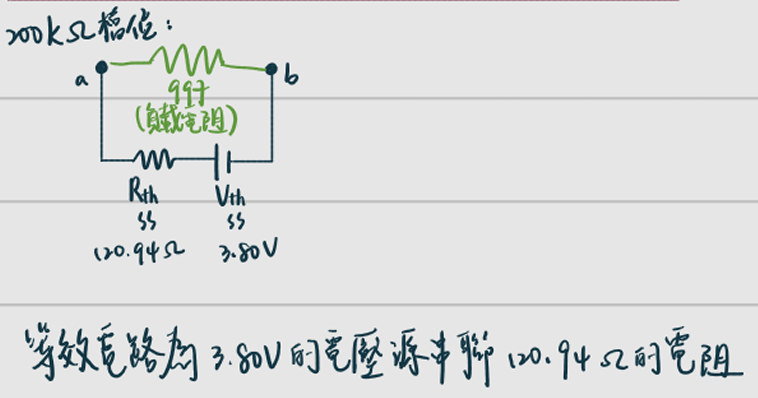 200kΩ檔位：
a
b
997
(負載電阻)
Rth
Vth
120.94Ω
3.80V
等效電路為 3.80V的電壓源串聯 120.94Ω的電阻